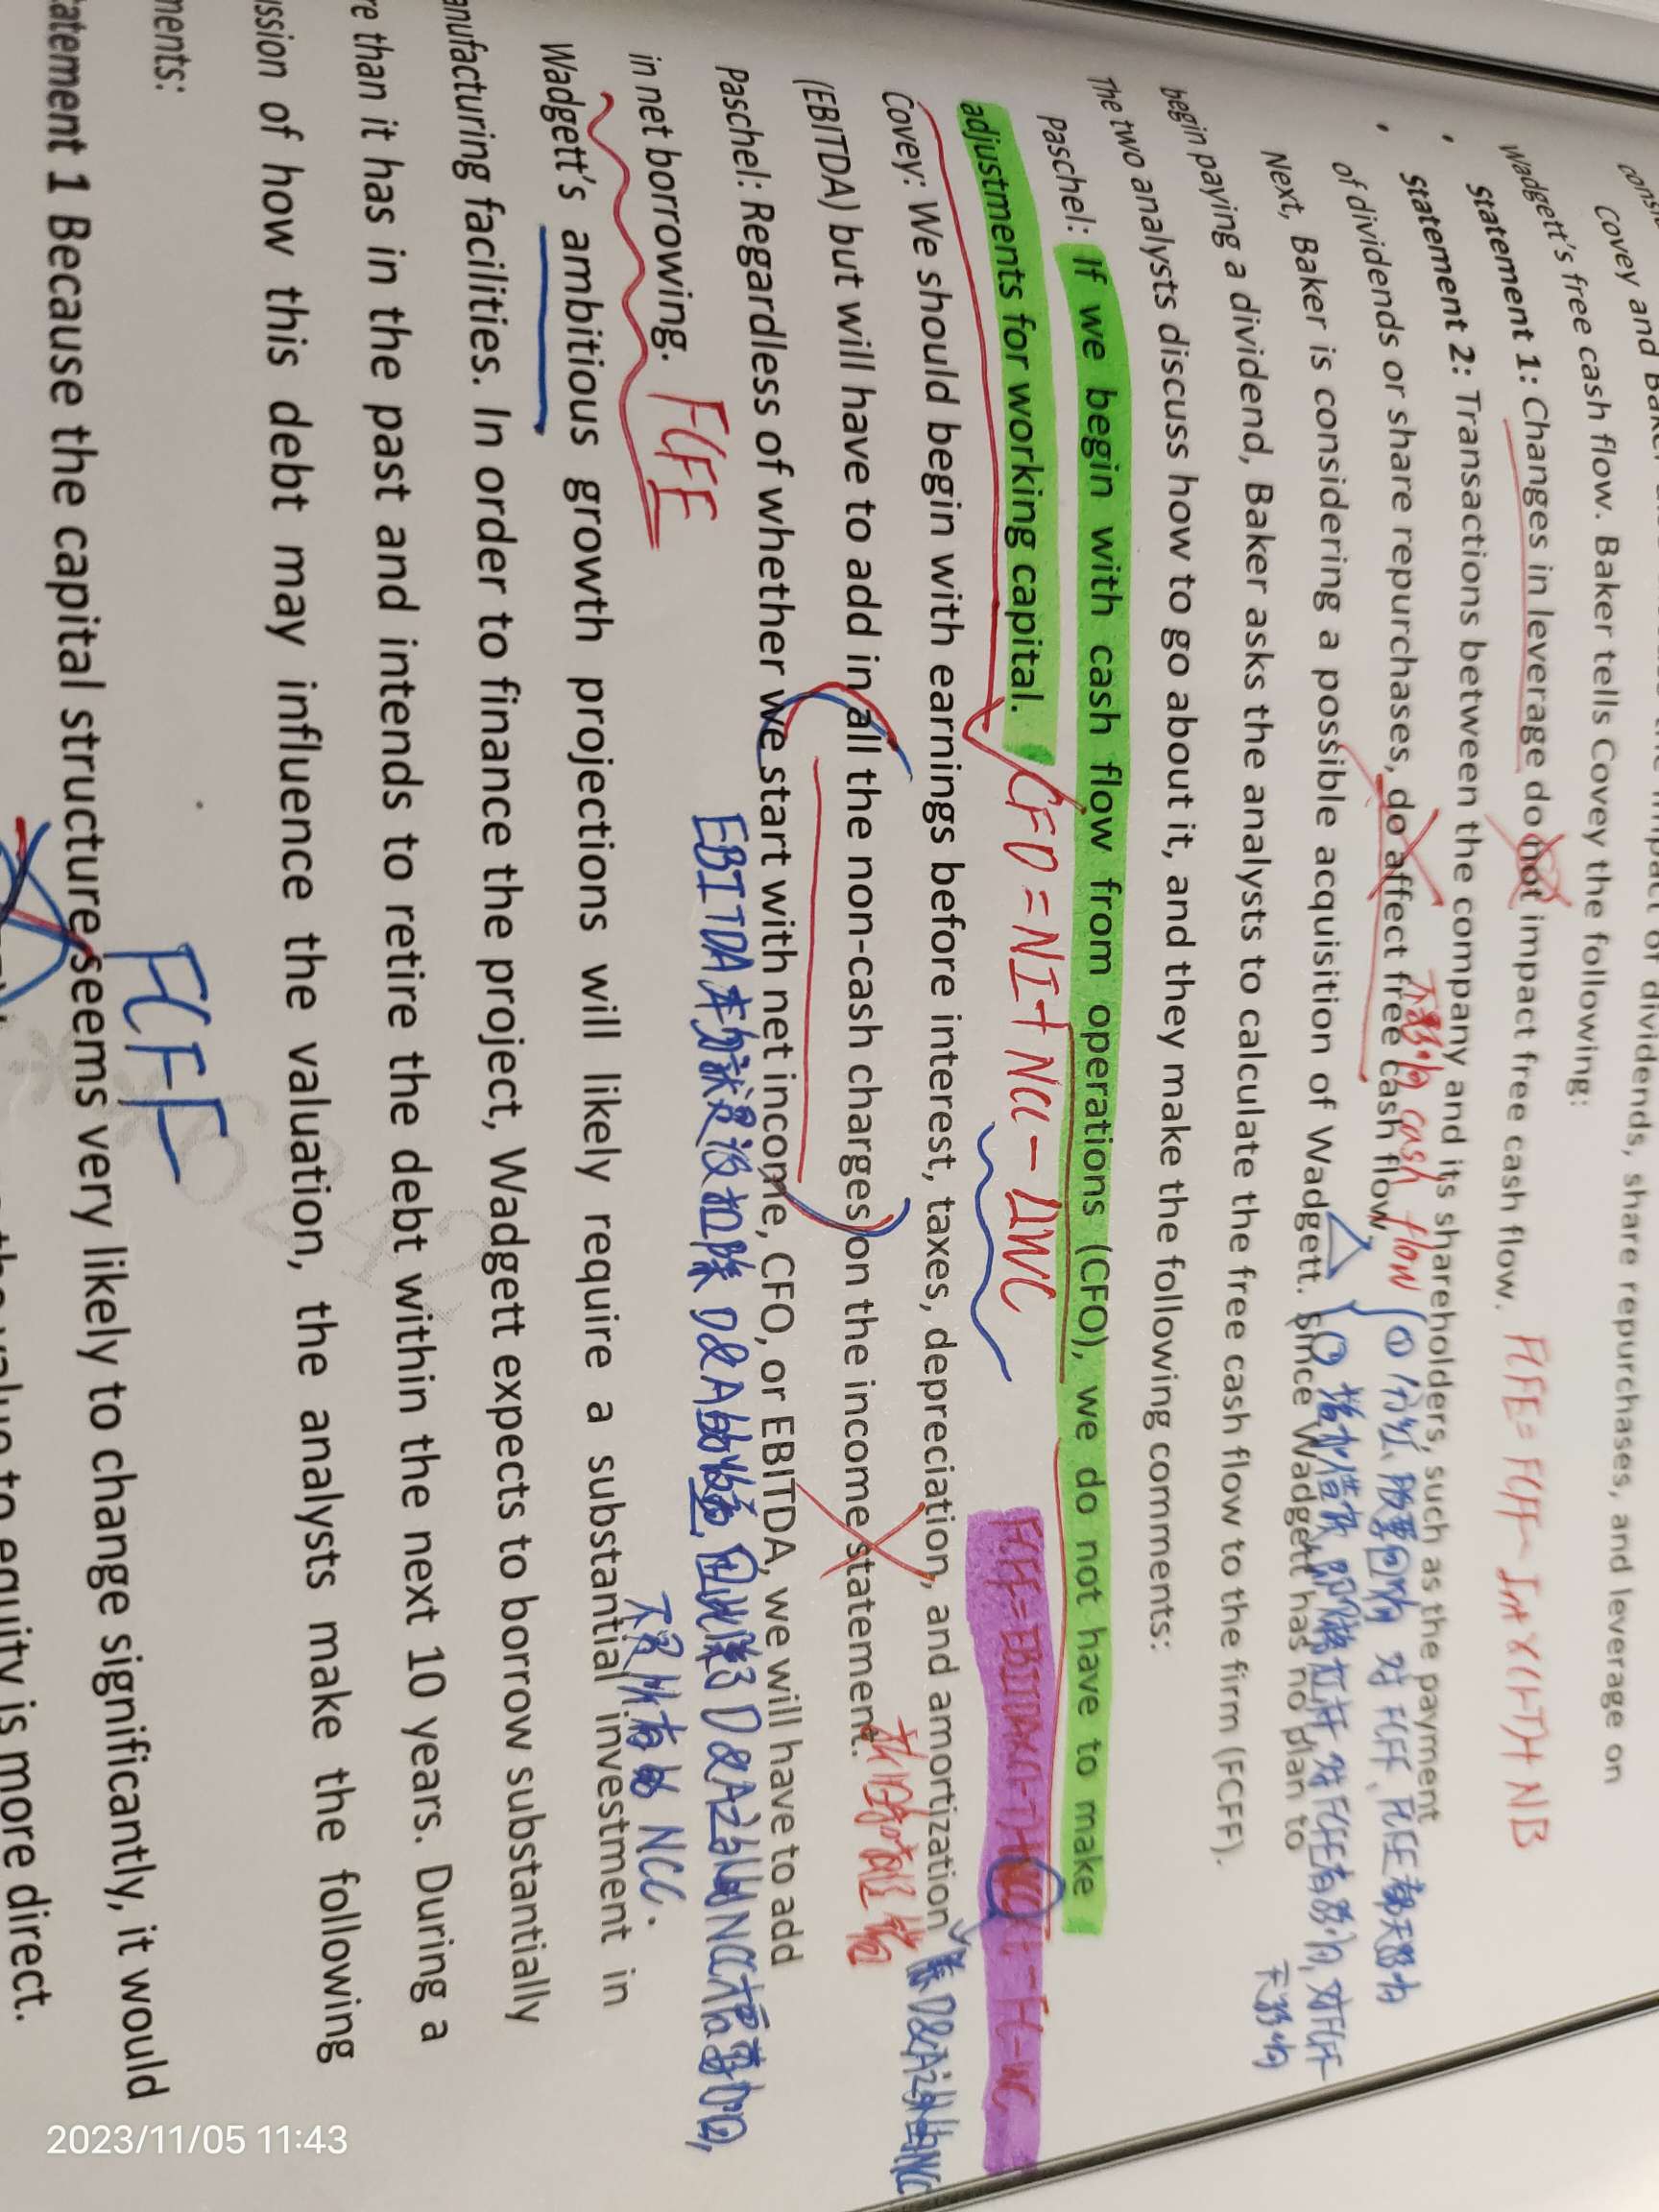 Covey and
of dividends, share repurchases, and leverage on
Wadgett's free cash flow. Baker tells Covey the following:
Statement 1: Changes in leverage do not impact free cash flow.
FCFE = FCFF - Int × (1-T) + NB
Statement 2: Transactions between the company and its shareholders, such as the payment
of dividends or share repurchases, do affect free cash flow.
不影响 cash flow
Next, Baker is considering a possible acquisition of Wadgett. Since Wadgett has no plan to
begin paying a dividend, Baker asks the analysts to calculate the free cash flow to the firm (FCFF).
The two analysts discuss how to go about it, and they make the following comments:
Paschel: If we begin with cash flow from operations (CFO), we do not have to make
adjustments for working capital.
CFO = NI + NCC - ΔWC
Covey: We should begin with earnings before interest, taxes, depreciation, and amortization
(EBITDA) but will have to add in all the non-cash charges on the income statement.
EBITDA本身就是没扣除D&A的收益,
不是所有的NCC.
Paschel: Regardless of whether we start with net income, CFO, or EBITDA, we will have to add
in net borrowing.
FCFE
Wadgett's ambitious growth projections will likely require a substantial investment in
anufacturing facilities. In order to finance the project, Wadgett expects to borrow substantially
re than it has in the past and intends to retire the debt within the next 10 years. During a
ussion of how this debt may influence the valuation, the analysts make the following
ments:
FCFF
atement 1 Because the capital structure seems very likely to change significantly, it would
value to equity is more direct.
2023/11/05 11:43